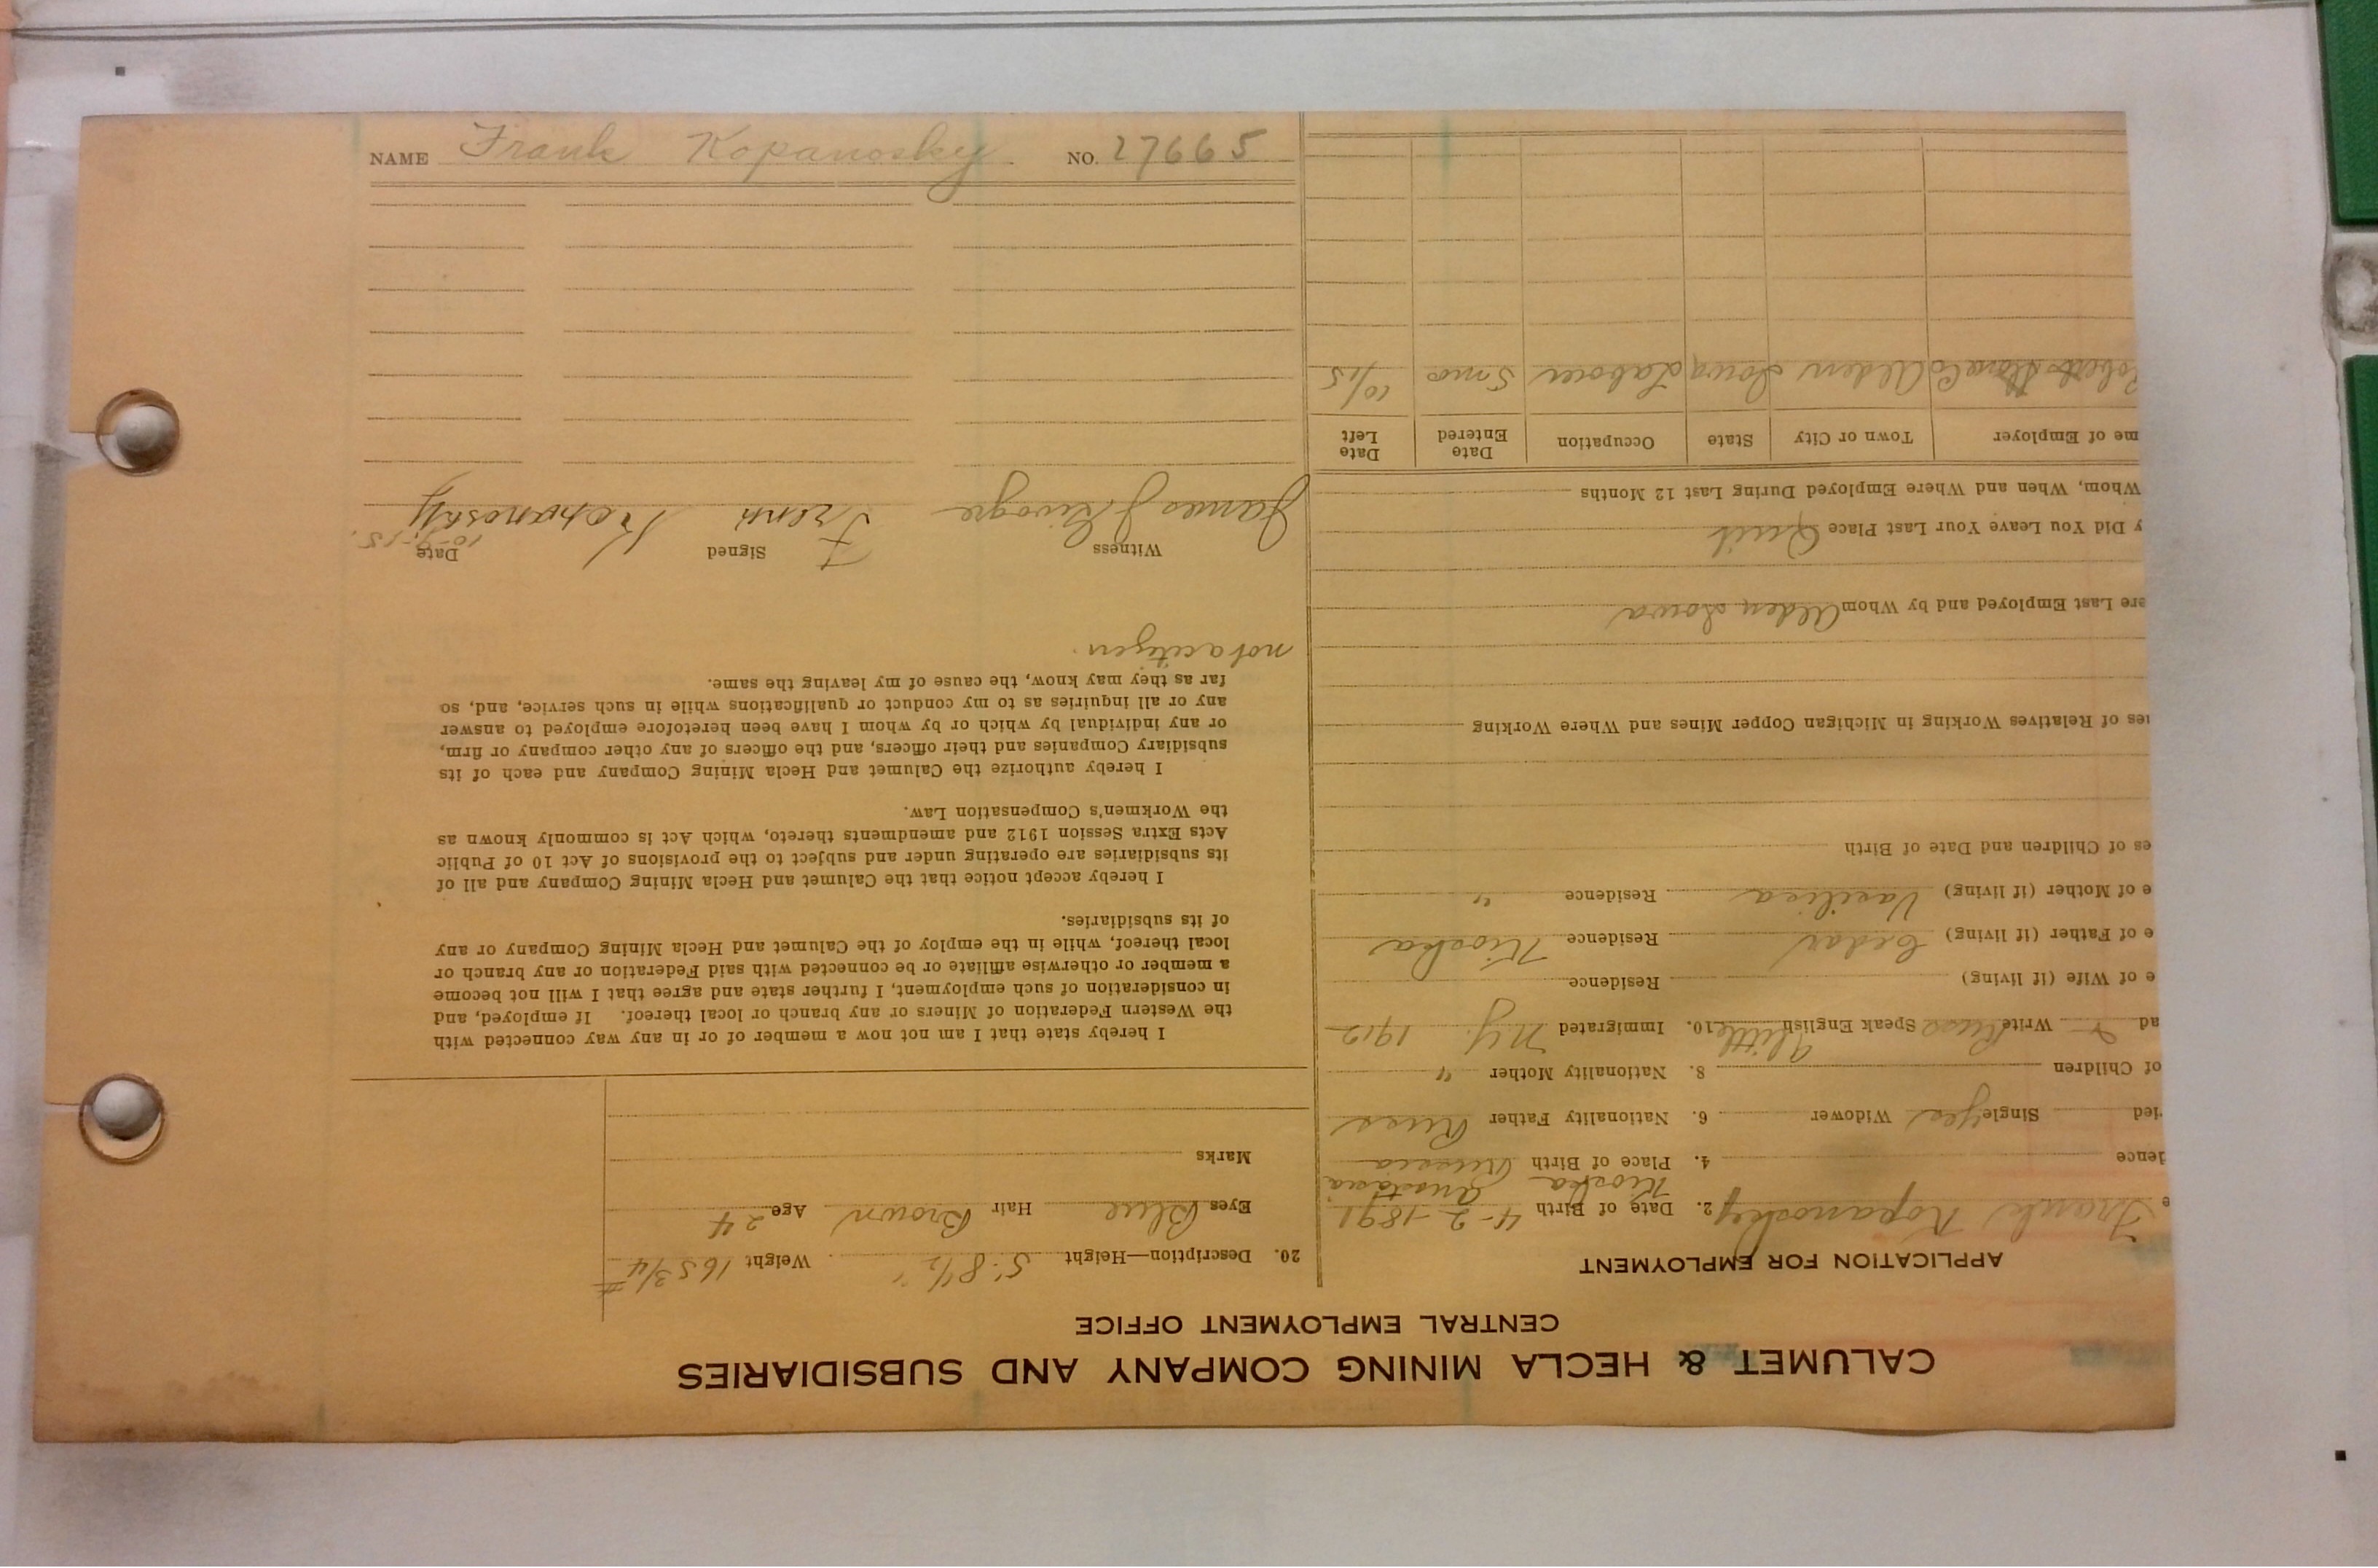 CALUMET & HECLA MINING COMPANY AND SUBSIDIARIES
CENTRAL EMPLOYMENT OFFICE
APPLICATION FOR EMPLOYMENT
e Frank Kopanosky 2. Date of Birth 4-2-1891
Kioska
dence 4. Place of Birth Russia
ried Single yes Widower 6. Nationality Father Russ
of Children 8. Nationality Mother "
ad Write Russ Speak English a little 10. Immigrated N.Y. 1912
e of Wife (if living) Residence
e of Father (if living) Residence Kioska
e of Mother (if living) Residence "
es of Children and Date of Birth
es of Relatives Working in Michigan Copper Mines and Where Working
ere Last Employed and by Whom Alden Iowa
y Did You Leave Your Last Place Quit
Whom, When and Where Employed During Last 12 Months
me of Employer Town or City State Occupation Date Entered Date Left
Alden Iowa Labour 5 mo 10/15
20. Description—Height 5' 8 1/2" Weight 165 3/4 #
Eyes Blue Hair Brown Age 24
Marks
I hereby state that I am not now a member of or in any way connected with
the Western Federation of Miners or any branch or local thereof. If employed, and
in consideration of such employment, I further state and agree that I will not become
a member or otherwise affiliate or be connected with said Federation or any branch or
local thereof, while in the employ of the Calumet and Hecla Mining Company or any
of its subsidiaries.
I hereby accept notice that the Calumet and Hecla Mining Company and all of
its subsidiaries are operating under and subject to the provisions of Act 10 of Public
Acts Extra Session 1912 and amendments thereto, which Act is commonly known as
the Workmen's Compensation Law.
I hereby authorize the Calumet and Hecla Mining Company and each of its
subsidiary Companies and their officers, and the officers of any other company or firm,
or any individual by which or by whom I have been heretofore employed to answer
any or all inquiries as to my conduct or qualifications while in such service, and, so
far as they may know, the cause of my leaving the same.
not a citizen.
Witness Signed Date
10-9-15.
James J Frenk Kopanoskyy
NAME Frank Kopanosky NO. 27665